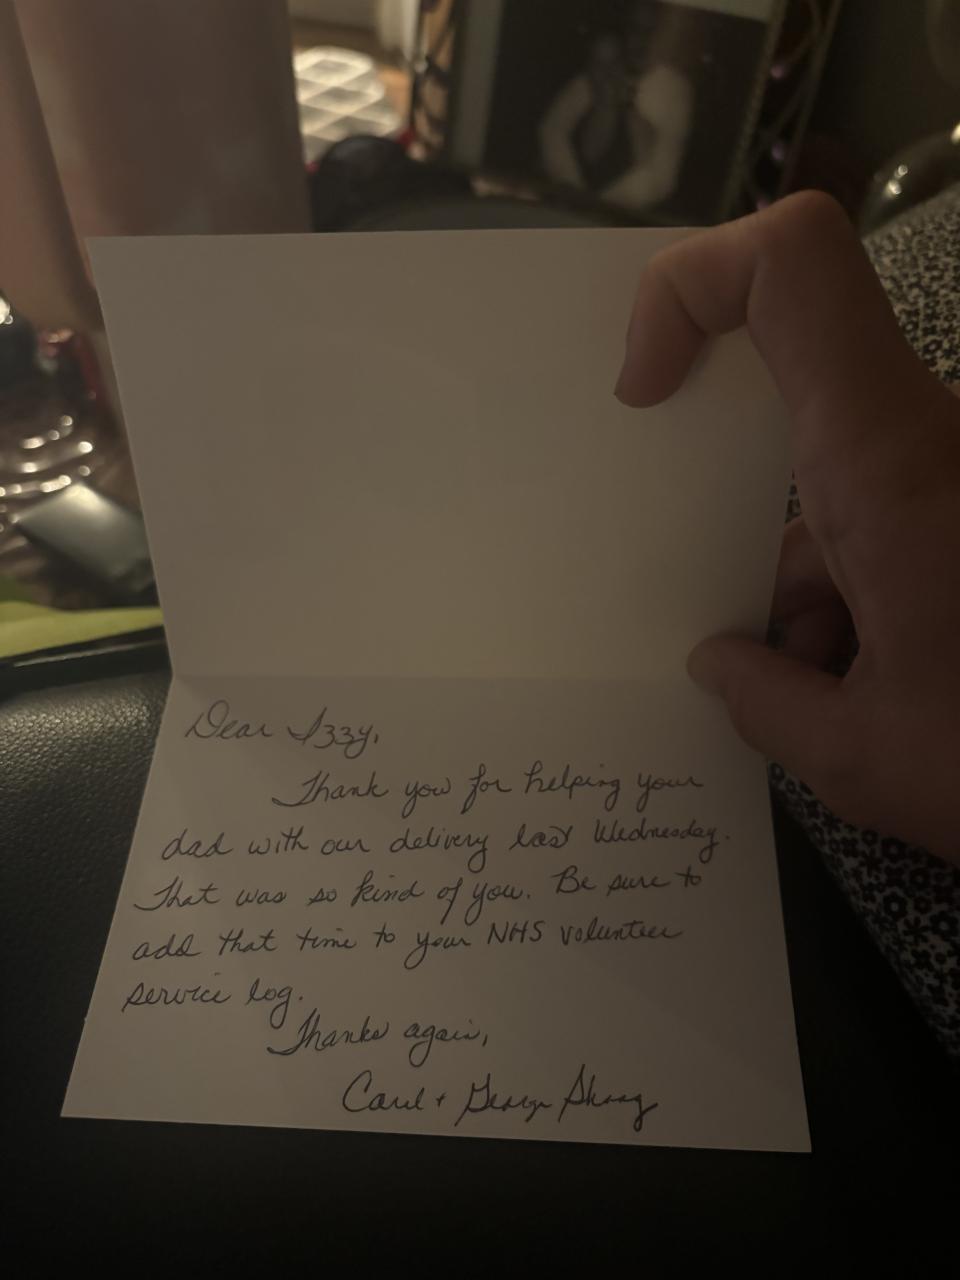 Dear Izzy,
Thank you for helping your
dad with our delivery last Wednesday.
That was so kind of you. Be sure to
add that time to your NHS volunteer
service log.
Thanks again,
Carol + George